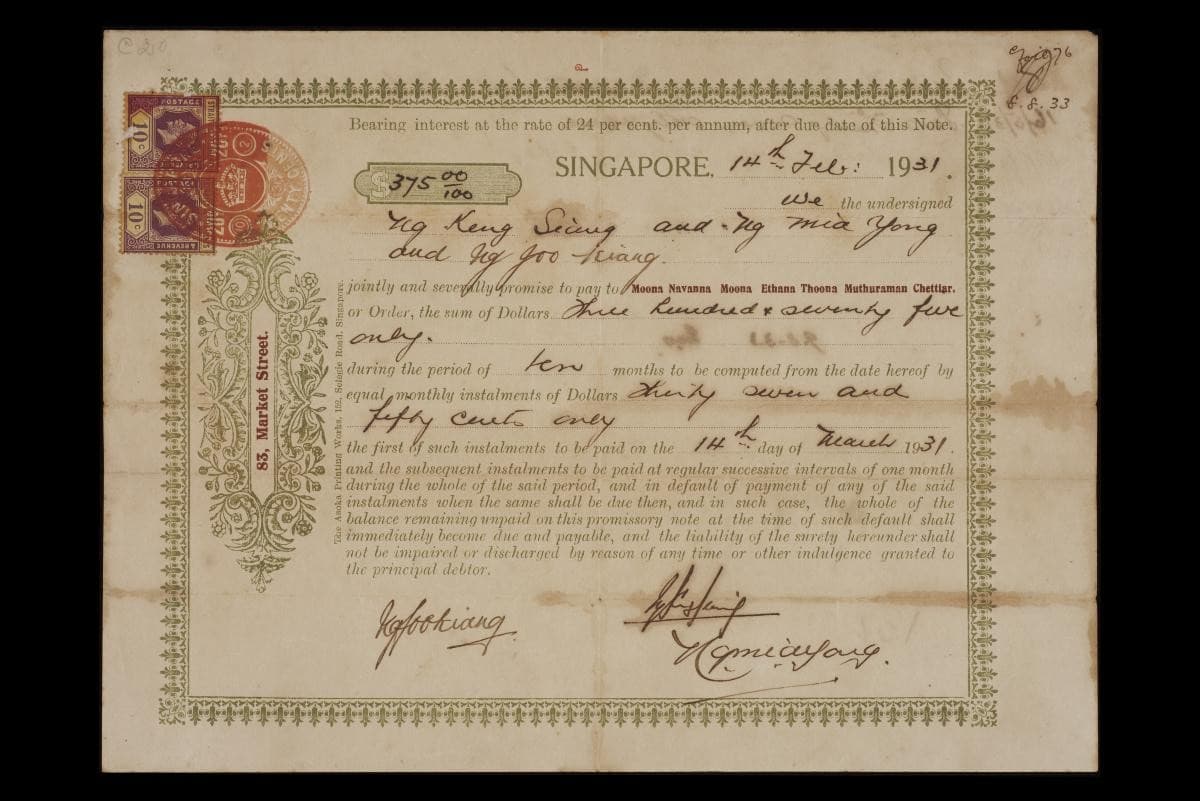 C 20
8. 8. 33
POSTAGE
10 C
POSTAGE
10 C
& REVENUE
Bearing interest at the rate of 24 per cent. per annum, after due date of this Note.
$375 00/100
SINGAPORE, 14th Feb: 1931.
We the undersigned
Ng Keng Siang and Ng Mia Yong
and Ng Joo Kiang.
jointly and severally promise to pay to Moona Navanna Moona Ethana Thoona Muthuraman Chettiar.
or Order, the sum of Dollars three hundred & seventy five
only.
during the period of ten months to be computed from the date hereof by
equal monthly instalments of Dollars thirty seven and
fifty cents only
the first of such instalments to be paid on the 14th day of March 1931.
and the subsequent instalments to be paid at regular successive intervals of one month
during the whole of the said period, and in default of payment of any of the said
instalments when the same shall be due then, and in such case, the whole of the
balance remaining unpaid on this promissory note at the time of such default shall
immediately become due and payable, and the liability of the surety hereunder shall
not be impaired or discharged by reason of any time or other indulgence granted to
the principal debtor.
83, Market Street.
The Asoka Printing Works, 192, Selegie Road, Singapore.
Ng Joo Kiang
Ng Mia Yong.